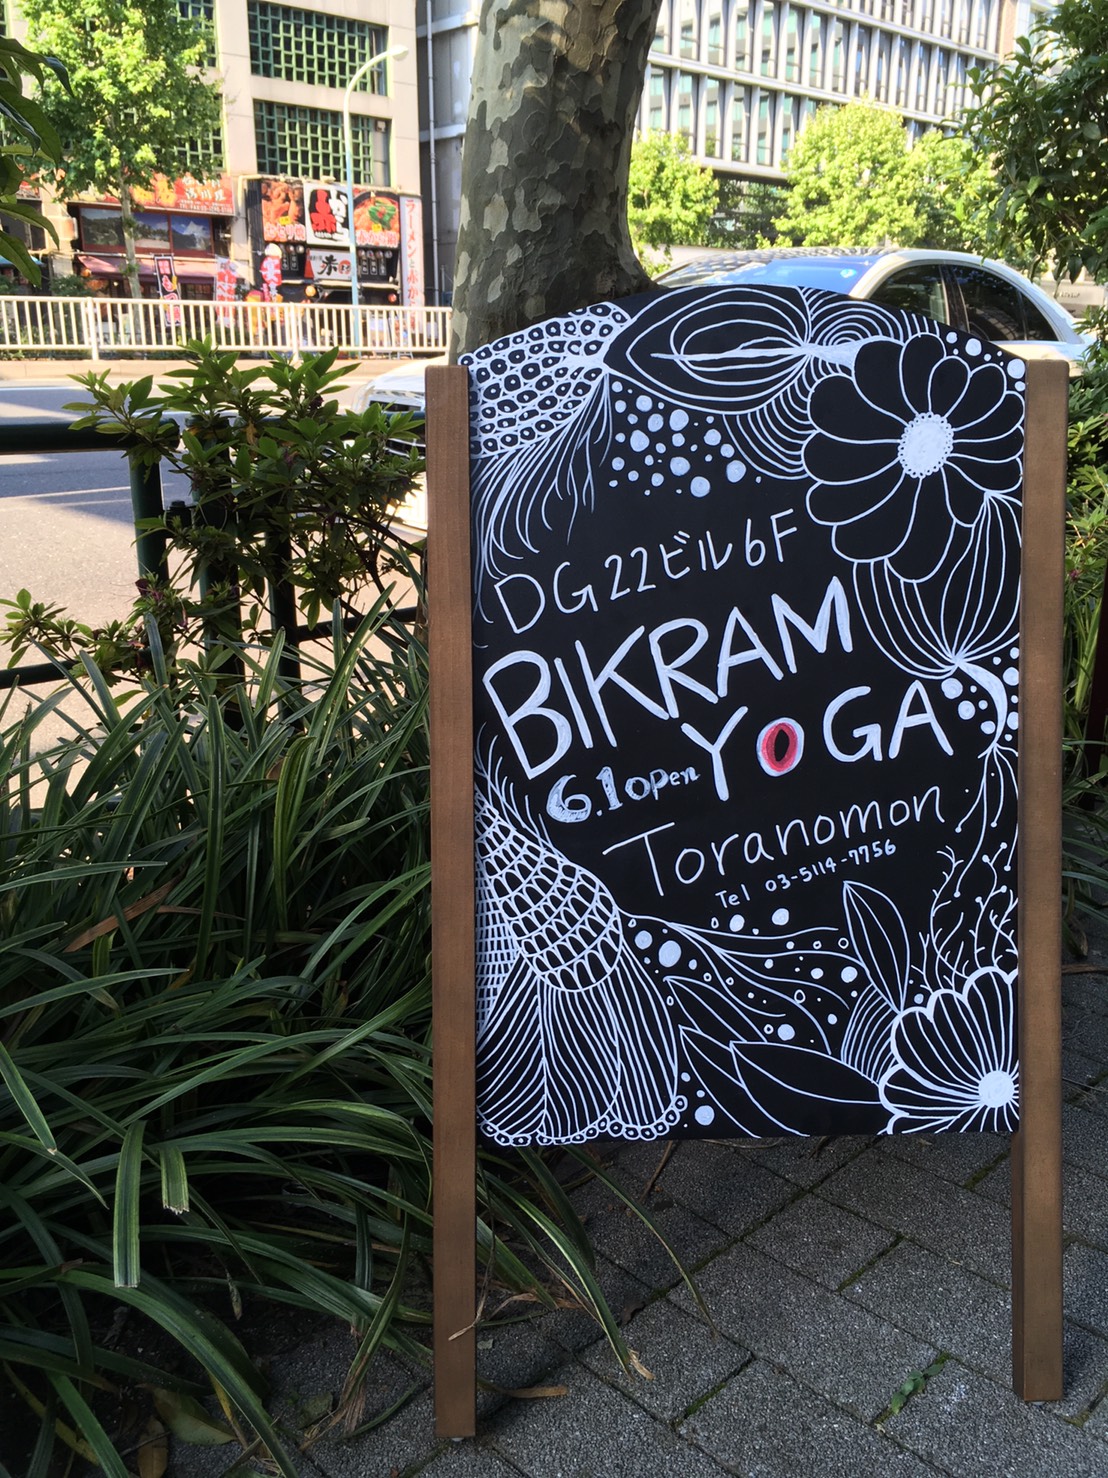 DG22ビル6F
BIKRAM
YOGA
6.1 open
Toranomon
Tel 03-5114-7756